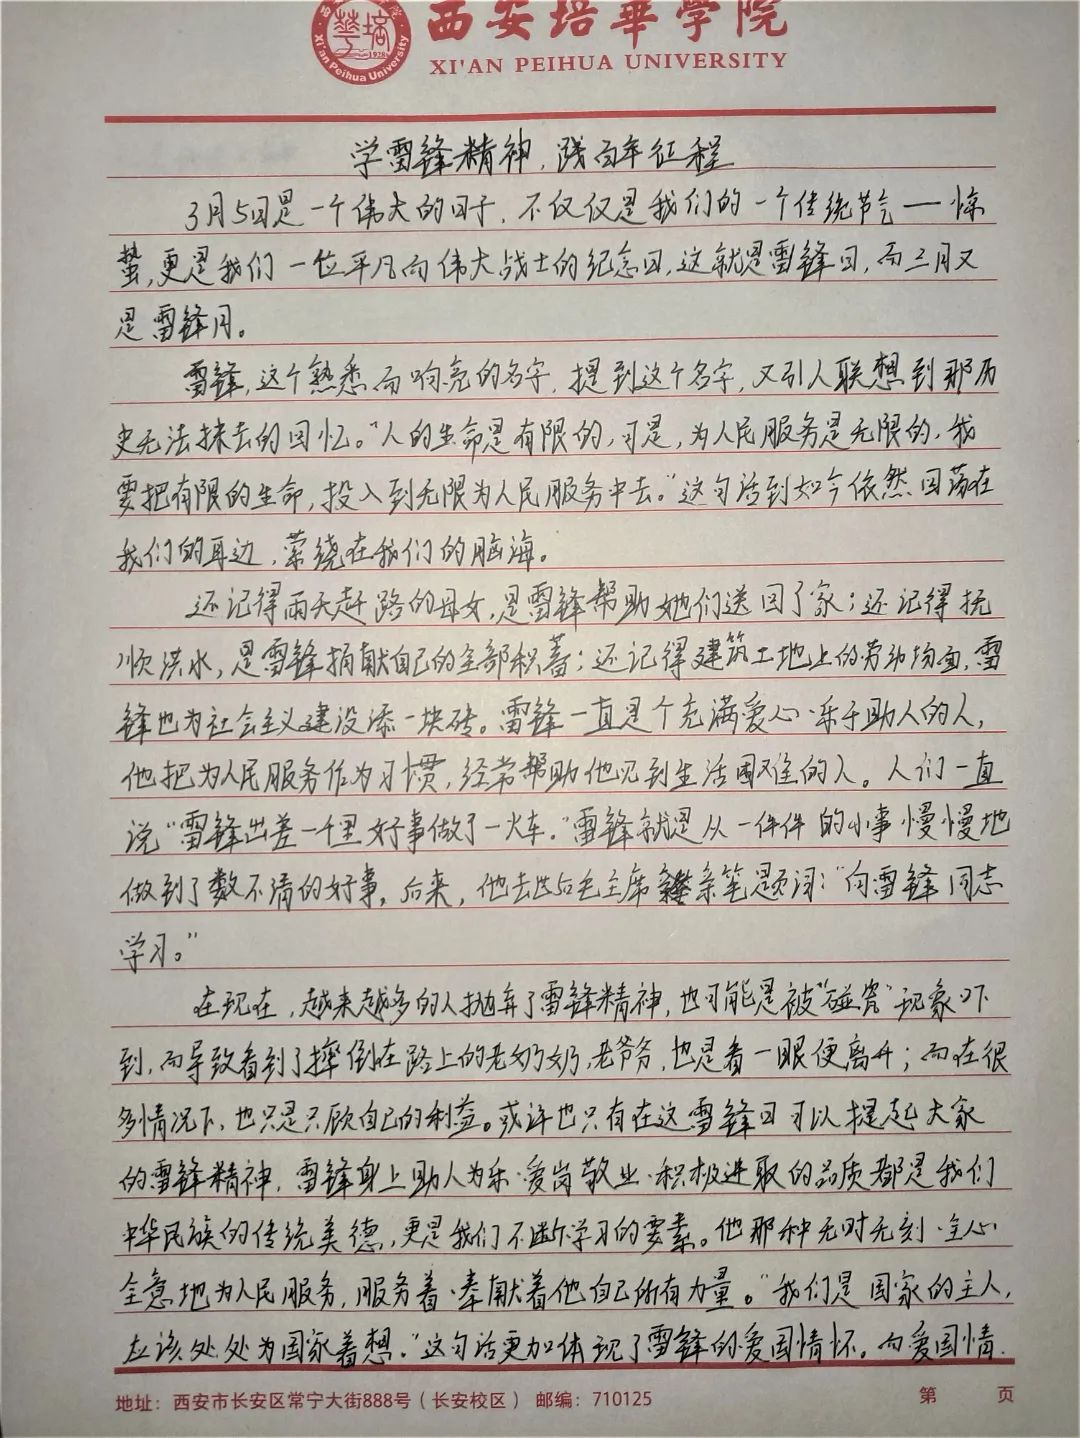 西安培華学院
XI'AN PEIHUA UNIVERSITY
Xi'an Peihua University
1928
学雷锋精神，践百年征程
3月5日是一个伟大的日子，不仅仅是我们的一个传统节气——惊
蛰，更是我们一位平凡而伟大战士的纪念日，这就是雷锋日，而三月又
是雷锋月。
雷锋，这个熟悉而响亮的名字，提到这个名字，又引人联想到那历
史无法抹去的回忆。"人的生命是有限的，可是，为人民服务是无限的，我
要把有限的生命，投入到无限为人民服务中去。"这句话到如今依然回荡在
我们的耳边，萦绕在我们的脑海。
还记得雨天赶路的母女，是雷锋帮助她们送回了家；还记得抚
顺洪水，是雷锋捐献自己的全部积蓄；还记得建筑工地上的劳动场面，雷
锋也为社会主义建设添一块砖。雷锋一直是个充满爱心、乐于助人的人，
他把为人民服务作为习惯，经常帮助他见到生活困难的人。人们一直
说"雷锋出差一千里好事做了一火车。"雷锋就是从一件件的小事慢慢地
做到了数不清的好事。后来，他去世后毛主席亲笔题词："向雷锋同志
学习。"
在现在，越来越多的人抛弃了雷锋精神，也可能是被"碰瓷"现象吓
到，而导致看到了摔倒在路上的老奶奶，老爷爷，也是看一眼便离开；而在很
多情况下，也只是只顾自己的利益。或许也只有在这雷锋日可以提起大家
的雷锋精神，雷锋身上助人为乐、爱岗敬业、积极进取的品质都是我们
中华民族的传统美德，更是我们不断学习的要素。他那种无时无刻、全心
全意地为人民服务，服务着、奉献着他自己所有力量。"我们是国家的主人，
应该处处为国家着想。"这句话更加体现了雷锋的爱国情怀。而爱国情
地址：西安市长安区常宁大街888号（长安校区） 邮编：710125 第 页